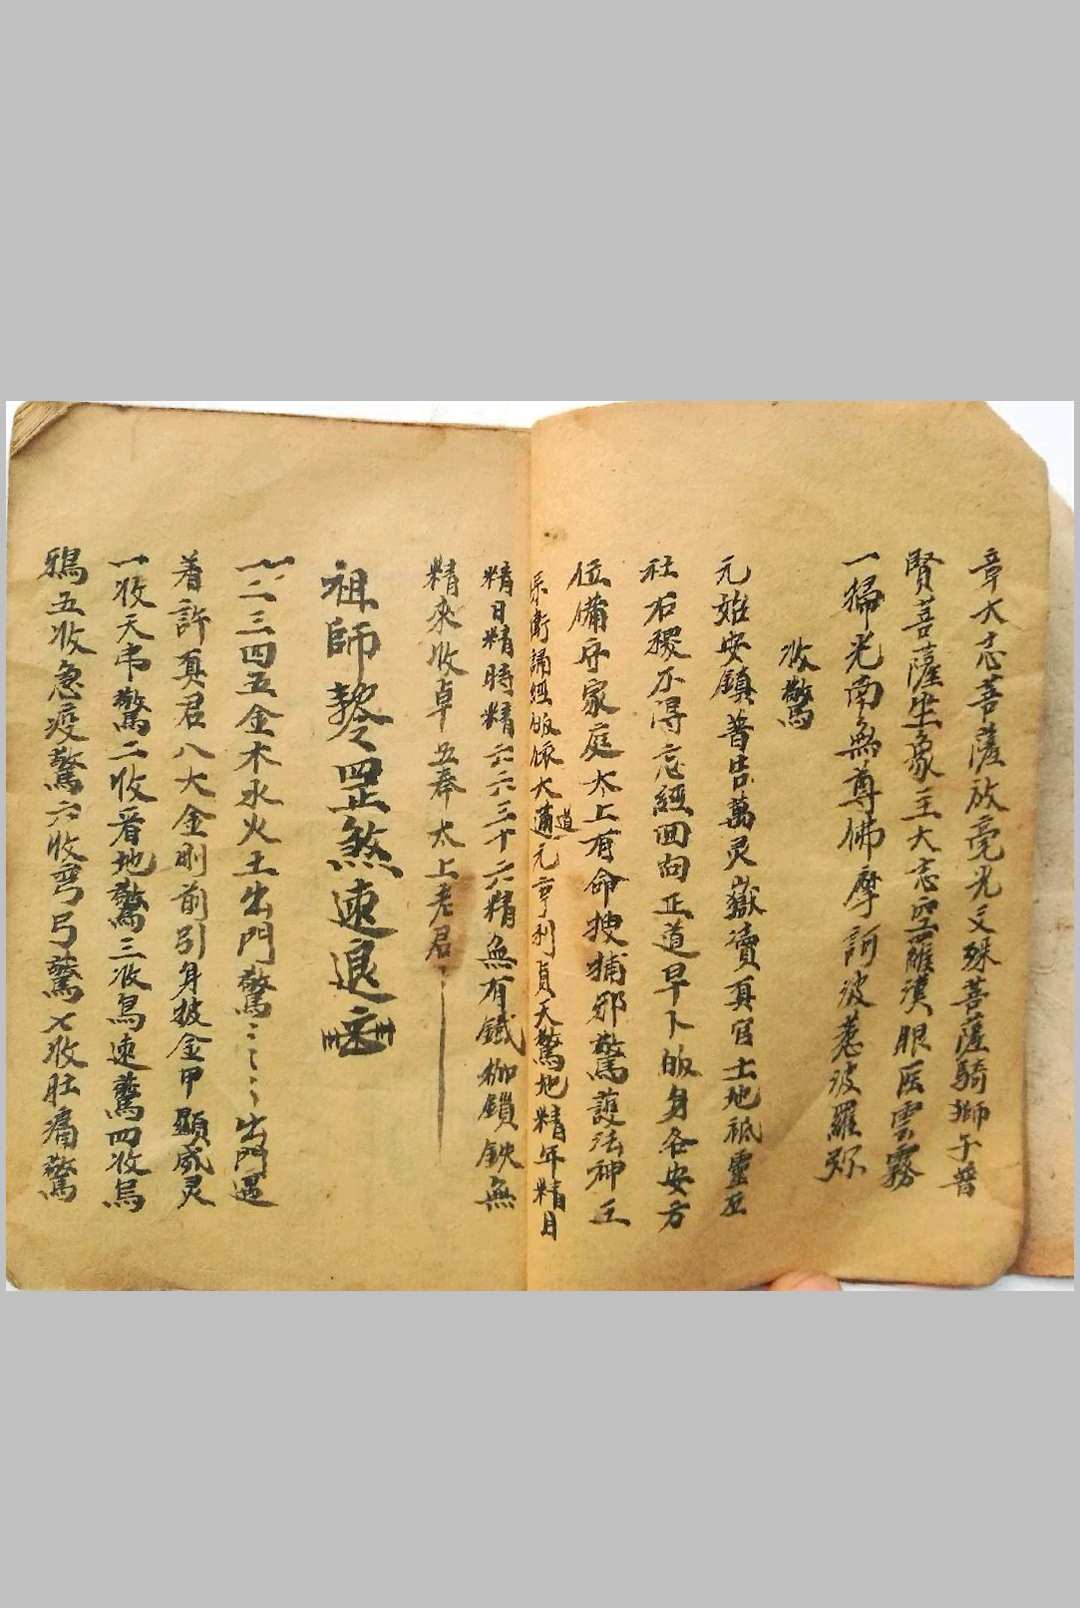 章大志菩薩放毫光文殊菩薩騎獅子普
賢菩薩坐象王大志空羅漢眼医雲霧
一掃光南無尊佛摩訶波惹波羅弥
收驚
元始安鎮普告萬灵嶽瀆真官土地祗靈左
社右稷不淂忘經回向正道早卜皈身各安方
位俻守家庭太上有命捜捕邪驚護法神王
保衛誦經皈依大道元亨利貞天驚地精年精月
精日精時精六六三十六精無有鐵枷鎖鉄無
精來收卓五奉太上老君
祖師勅令罡煞速退
一二三四五金木水火土出門驚〻〻〻出門遇
着許真君八大金剛前引身披金甲顯威灵
一收天弔驚二收看地驚三收馬速驚四收烏
鴉五收急疫驚六收弯弓驚七收肚痛驚